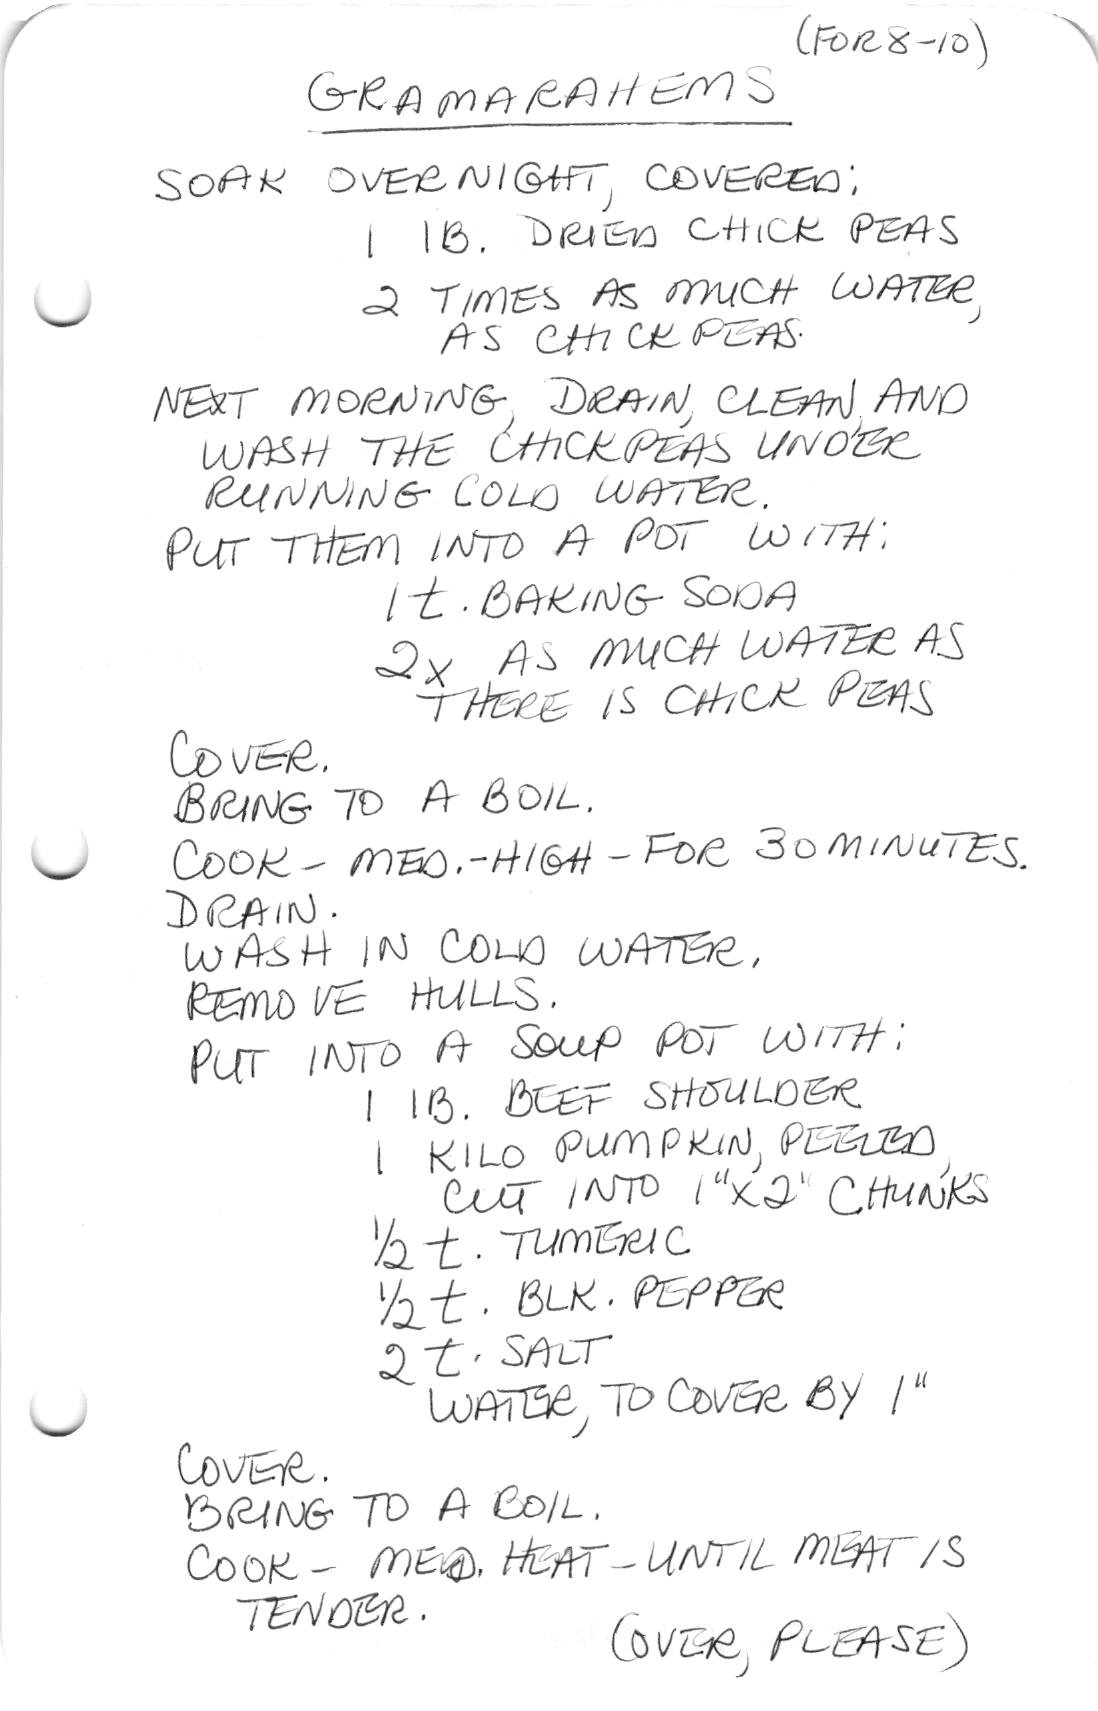 (FOR 8-10)
GRAMARAHEMS
SOAK OVERNIGHT, COVERED:
1 lB. DRIED CHICK PEAS
2 TIMES AS MUCH WATER,
AS CHICK PEAS.
NEXT MORNING, DRAIN, CLEAN, AND
WASH THE CHICKPEAS UNDER
RUNNING COLD WATER.
PUT THEM INTO A POT WITH:
1 t. BAKING SODA
2x AS MUCH WATER AS
THERE IS CHICK PEAS
COVER.
BRING TO A BOIL.
COOK - MED.-HIGH - FOR 30 MINUTES.
DRAIN.
WASH IN COLD WATER.
REMOVE HULLS.
PUT INTO A SOUP POT WITH:
1 lB. BEEF SHOULDER
1 KILO PUMPKIN, PEELED,
CUT INTO 1"X2" CHUNKS
1/2 t. TUMERIC
1/2 t. BLK. PEPPER
2 t. SALT
WATER, TO COVER BY 1"
COVER.
BRING TO A BOIL.
COOK - MED. HEAT - UNTIL MEAT IS
TENDER.
(OVER, PLEASE)